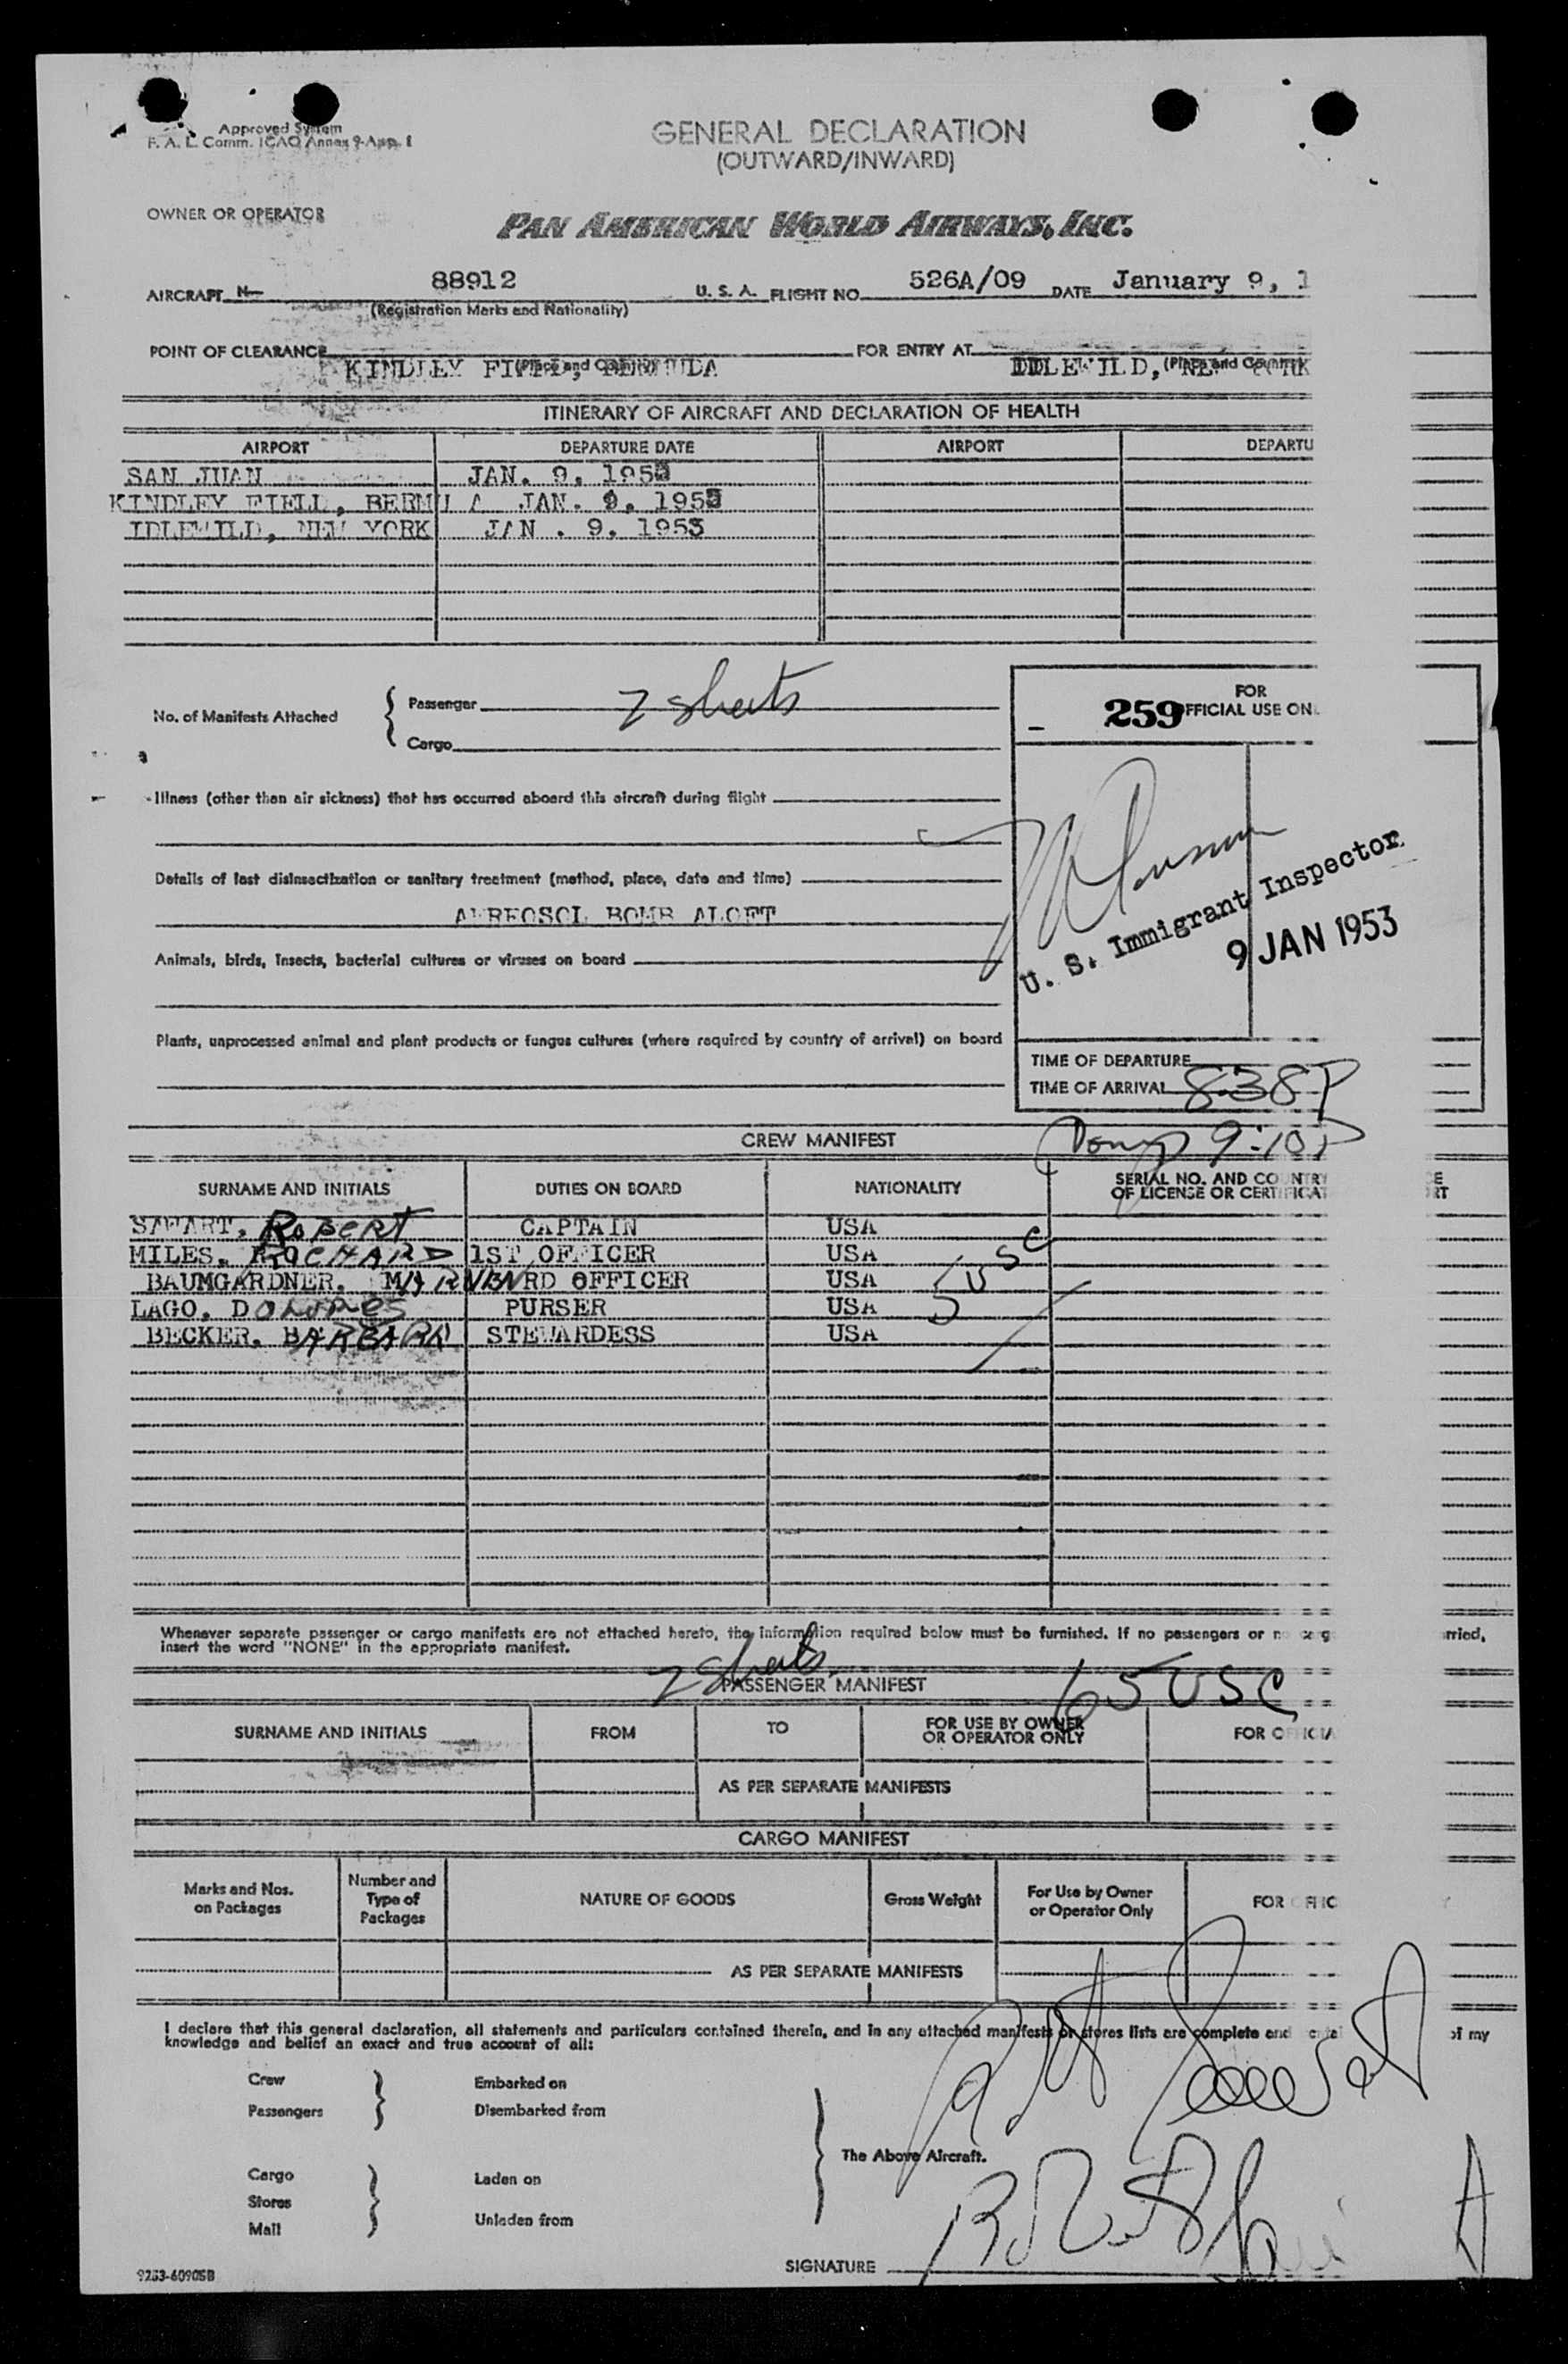 Approved System
F. A. L. Comm. ICAO Annex 9-App. 1
GENERAL DECLARATION
(OUTWARD/INWARD)
OWNER OR OPERATOR
PAN AMERICAN WORLD AIRWAYS, INC.
AIRCRAFT N- 88912 U. S. A. FLIGHT NO. 526A/09 DATE January 9, 1
(Registration Marks and Nationality)
POINT OF CLEARANCE FOR ENTRY AT
KINDLEY FIELD, BERMUDA IDLEWILD, NEW YORK
(Place and Country) (Place and Country
ITINERARY OF AIRCRAFT AND DECLARATION OF HEALTH
AIRPORT DEPARTURE DATE AIRPORT DEPARTU
SAN JUAN JAN. 9, 1953
KINDLEY FIELD, BERMU A JAN. 9, 1953
IDLEWILD, NEW YORK JAN . 9, 1953
No. of Manifests Attached
Passenger 2 sheets
Cargo
FOR
259 OFFICIAL USE ON
Illness (other than air sickness) that has occurred aboard this aircraft during flight
Details of last disinsectization or sanitary treatment (method, place, date and time)
AEREOSOL BOMB ALOFT
U. S. Immigrant Inspector
9 JAN 1953
Animals, birds, insects, bacterial cultures or viruses on board
Plants, unprocessed animal and plant products or fungus cultures (where required by country of arrival) on board
TIME OF DEPARTURE
TIME OF ARRIVAL 838P
9:10P
CREW MANIFEST
SURNAME AND INITIALS DUTIES ON BOARD NATIONALITY SERIAL NO. AND COUNTRY
OF LICENSE OR CERTIFICAT
CE
RT
ROBERT CAPTAIN USA
MILES, RICHARD 1ST OFFICER USA
BAUMGARDNER, MARVIN RD OFFICER USA
LAGO, DOLORES PURSER USA
BECKER, BARBARA STEWARDESS USA
5 USC
Whenever separate passenger or cargo manifests are not attached hereto, the information required below must be furnished. If no passengers or no carg rried,
insert the word "NONE" in the appropriate manifest.
2 sheets
65 USC
PASSENGER MANIFEST
SURNAME AND INITIALS FROM TO FOR USE BY OWNER
OR OPERATOR ONLY
FOR OFFICIA
AS PER SEPARATE MANIFESTS
CARGO MANIFEST
Marks and Nos.
on Packages
Number and
Type of
Packages
NATURE OF GOODS
Gross Weight
For Use by Owner
or Operator Only
FOR OFFIC
AS PER SEPARATE MANIFESTS
I declare that this general declaration, all statements and particulars contained therein, and in any attached manifests or stores lists are complete and of my
knowledge and belief an exact and true account of all:
Crew Embarked on
Passengers Disembarked from
The Above Aircraft.
Cargo Laden on
Stores
Mail Unladen from
SIGNATURE
9253-60905B